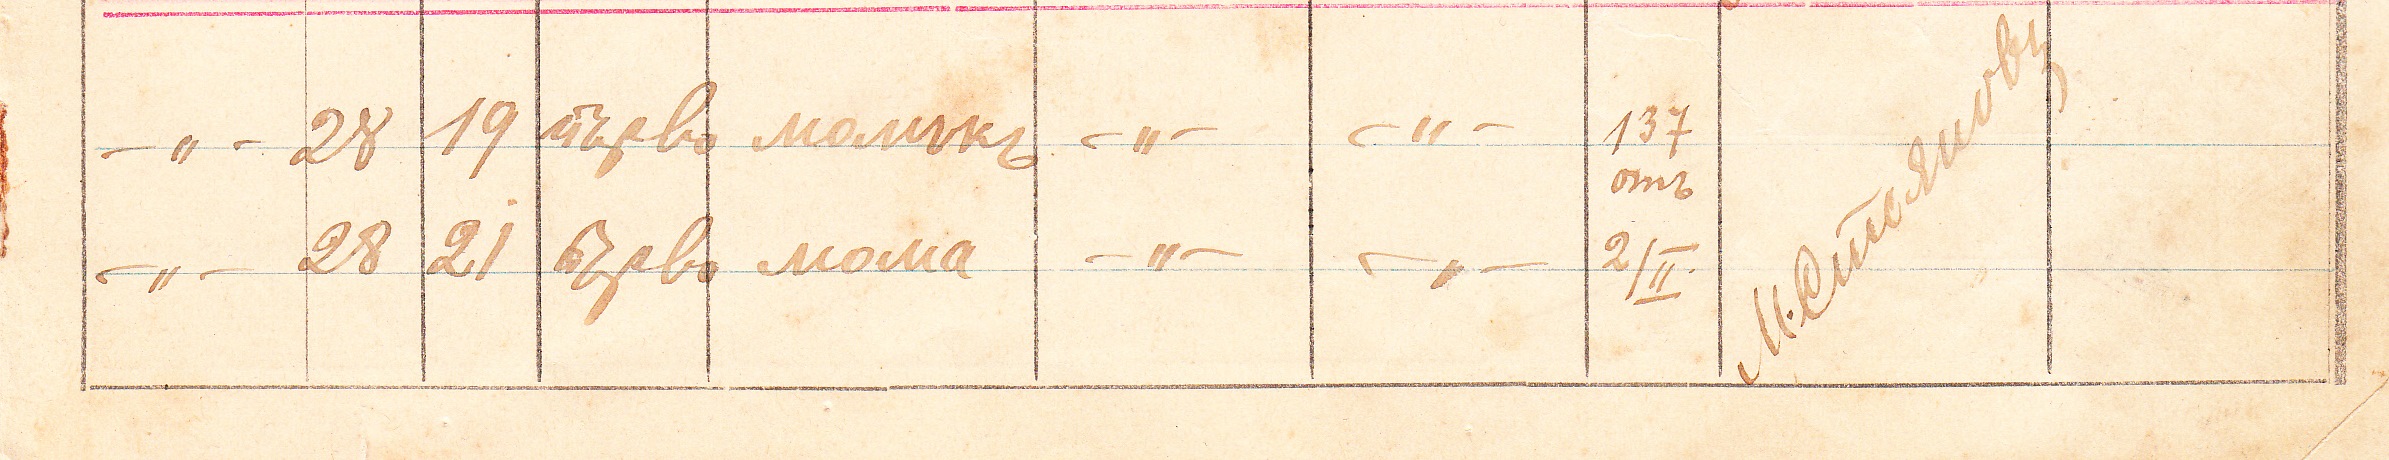 -„- 28 19 първо момъкъ -„- -„- 137
отъ
-„- 28 21 първо мома -„- -„- 2/II.
М. Стояновъ